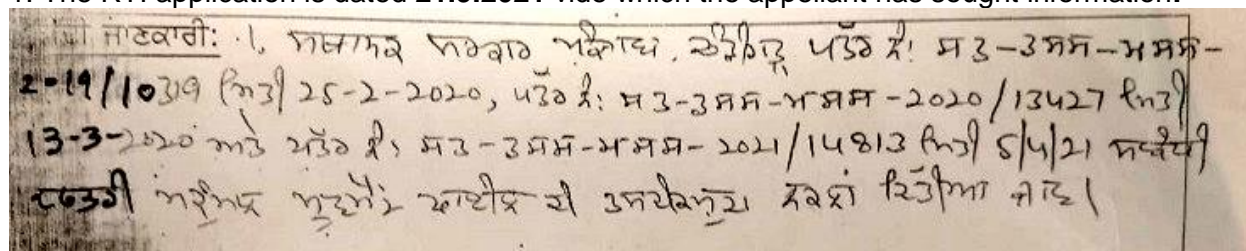 1. The RTI application is dated 21.6.2021 vide which the appellant has sought information.
ਜਾਣਕਾਰੀ: 1. ਪੰਜਾਬ ਸਰਕਾਰ ਚੰਡੀਗੜ੍ਹ ਪੱਤਰ ਨੰ: ਸਤ-3ਸਸ-ਅਸਸ-
2-19/10319 ਮਿਤੀ 25-2-2020, ਪੱਤਰ ਨੰ: ਸਤ-3ਸਸ-ਅਸਸ-2020/13427 ਮਿਤੀ
13-3-2020 ਅਤੇ ਪੱਤਰ ਨੰ: ਸਤ-3ਸਸ-ਅਸਸ-2021/14813 ਮਿਤੀ 5/4/21 ਸਬੰਧੀ
ਦਫਤਰੀ ਫਾਈਲ ਦੀ ਤਸਦੀਕਸ਼ੁਦਾ ਨਕਲਾਂ ਦਿੱਤੀਆਂ ਜਾਣ।